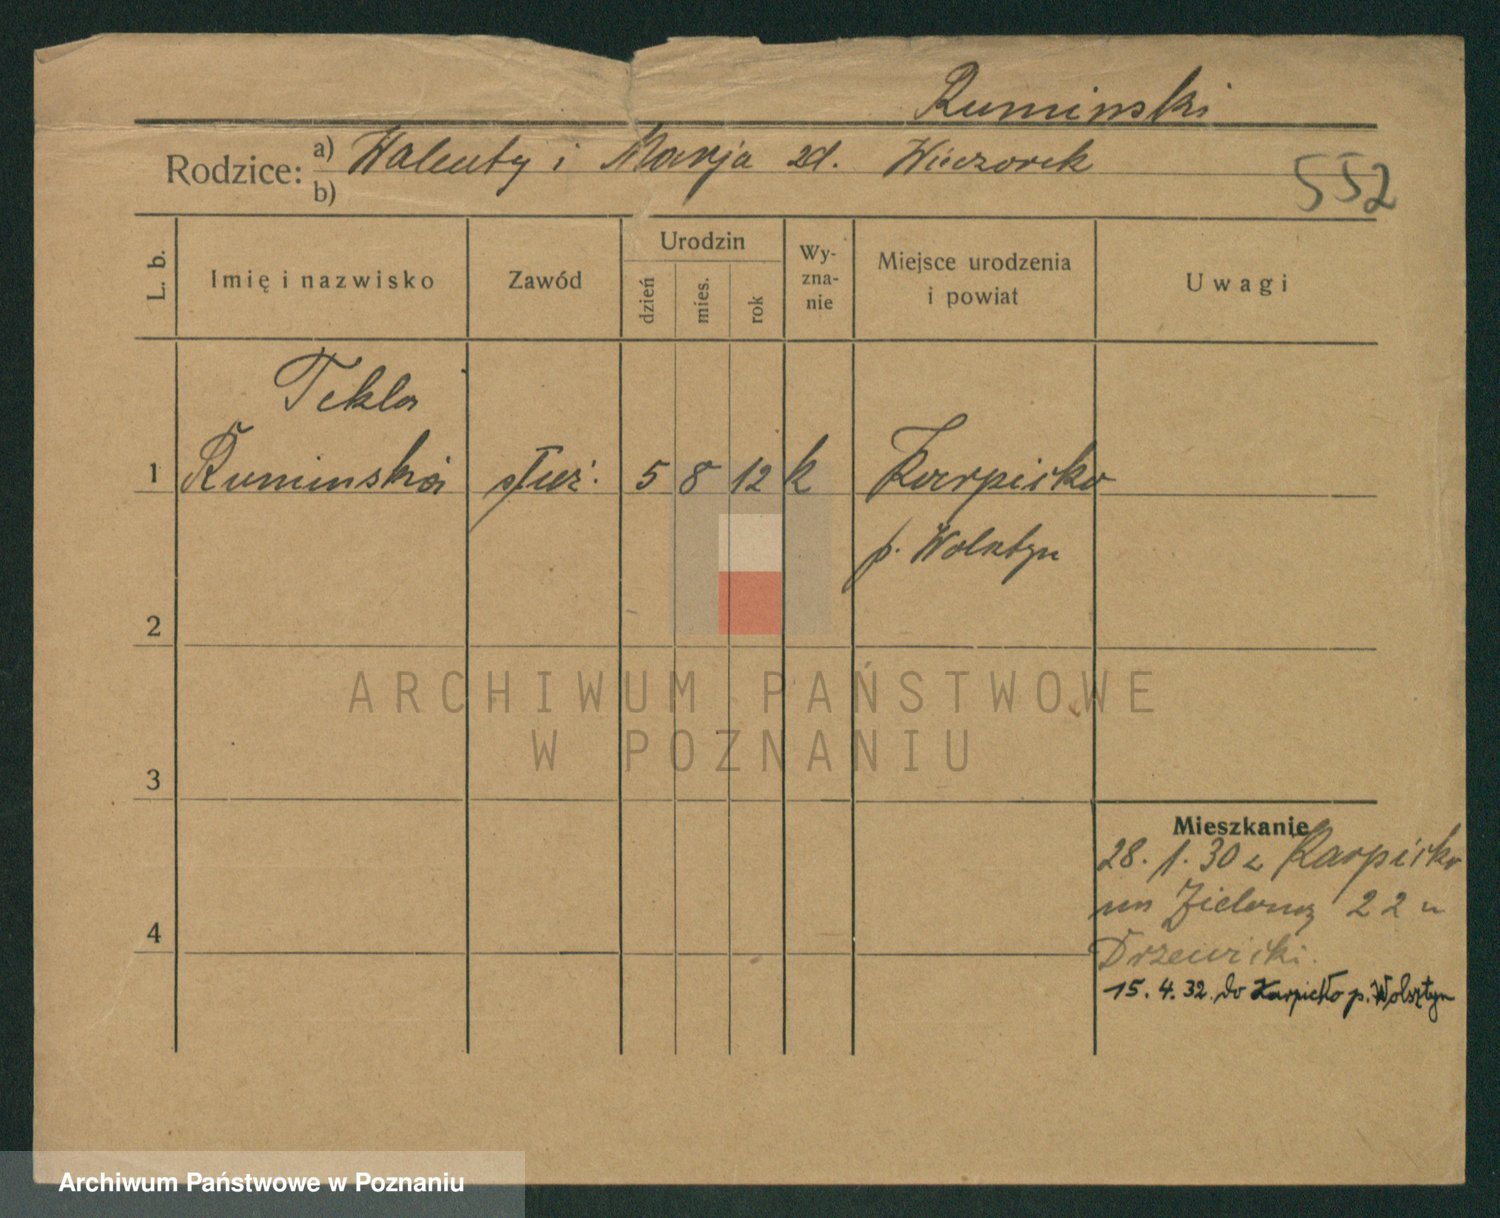 Ruminski
Rodzice: a) Walenty i Marja zd. Wieczorek
b)
552
L. b.
Imię i nazwisko
Zawód
Urodzin
dzień
mies.
rok
Wy-
zna-
nie
Miejsce urodzenia
i powiat
Uwagi
Tekla
1 Ruminska służ. 5 8 12 k Karpicko
p. Wolsztyn
2
ARCHIWUM PAŃSTWOWE
W POZNANIU
3
Mieszkanie
28. 1. 30 z Karpicko
na Zieloną 22 u
4
Drzewicki.
15. 4. 32. do Karpicko p. Wolsztyn
Archiwum Państwowe w Poznaniu